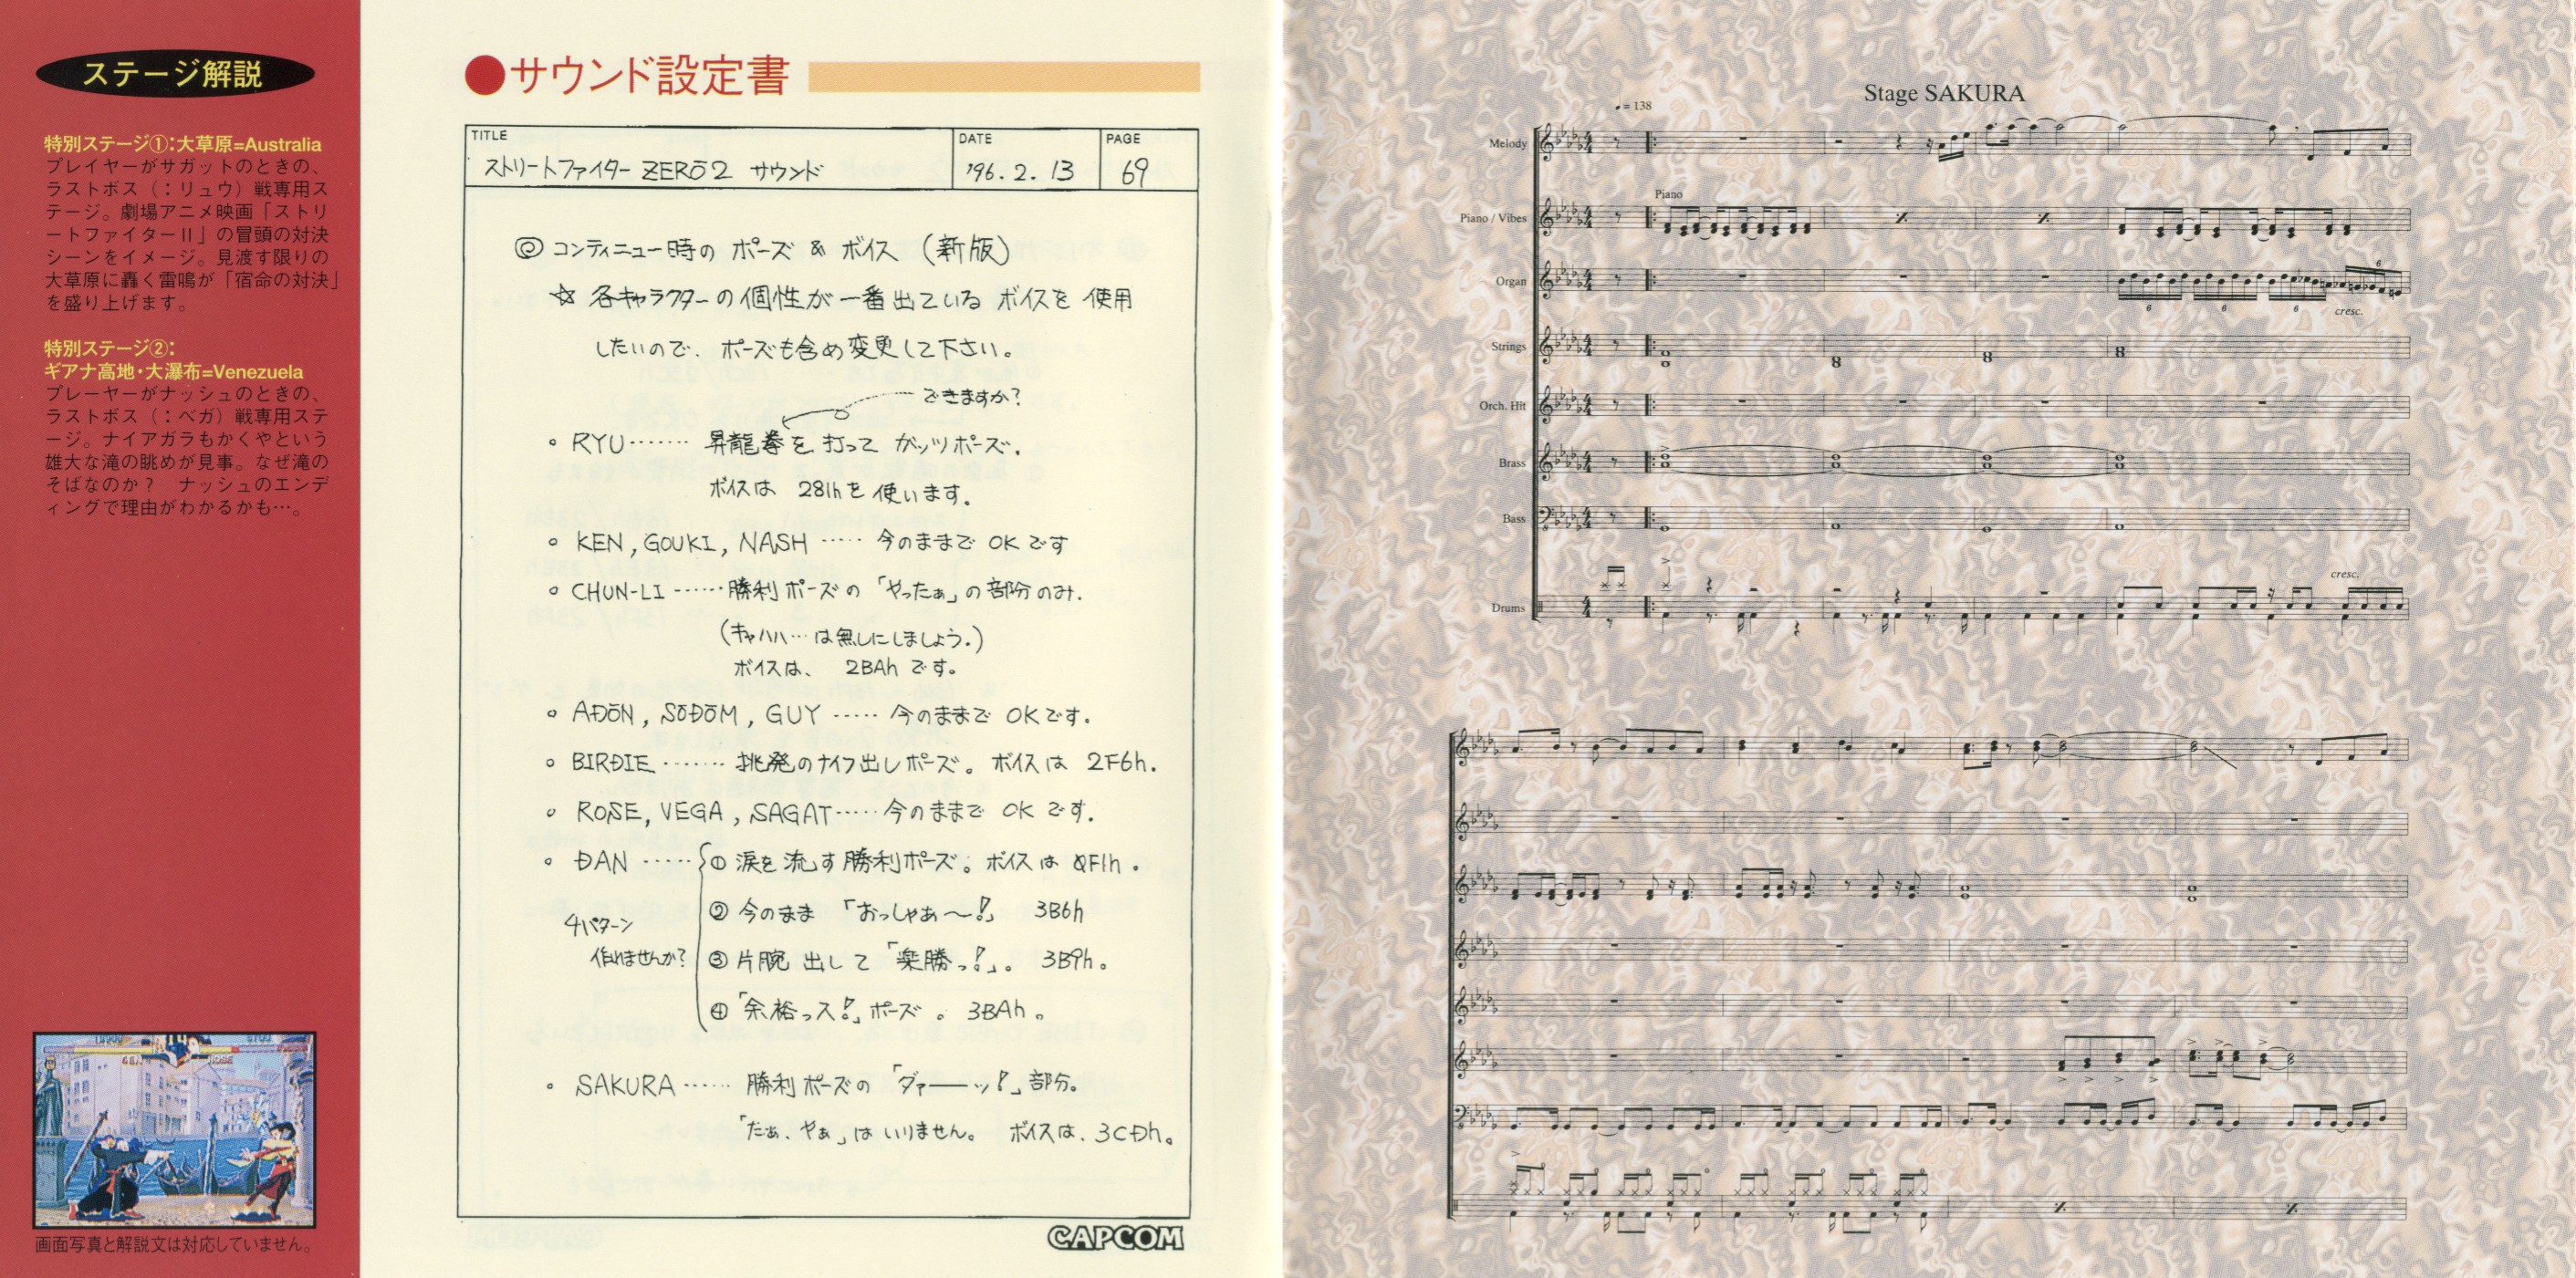 ステージ解説
特別ステージ①:大草原=Australia
プレイヤーがサガットのときの、
ラストボス（：リュウ）戦専用ス
テージ。劇場アニメ映画「ストリ
ートファイターⅡ」の冒頭の対決
シーンをイメージ。見渡す限りの
大草原に轟く雷鳴が「宿命の対決」
を盛り上げます。
特別ステージ②:
ギアナ高地・大瀑布=Venezuela
プレーヤーがナッシュのときの、
ラストボス（：ベガ）戦専用ステ
ージ。ナイアガラもかくやという
雄大な滝の眺めが見事。なぜ滝の
そばなのか？　ナッシュのエンデ
ィングで理由がわかるかも…。
画面写真と解説文は対応していません。
●サウンド設定書
TITLE
ストリートファイター ZERO2 サウンド
DATE
'96. 2. 13
PAGE
69
◎ コンティニュー時の ポーズ & ボイス (新版)
☆ 各キャラクターの個性が一番出ている ボイスを 使用
したいので、ポーズも含め変更して下さい。
できますか?
○ RYU……… 昇龍拳を 打って ガッツポーズ.
ボイスは 281hを 使います。
○ KEN, GOUKI, NASH ····· 今のままで OK です
○ CHUN-LI ······勝利ポーズの「やったぁ」の部分のみ.
(キャハハ…は無しにしましょう.)
ボイスは、 2BAh です。
○ ADON, SODOM, GUY ····· 今のままで OKです.
○ BIRDIE ······· 挑発のナイフ出しポーズ。ボイスは 2F6h.
○ ROSE, VEGA, SAGAT·····今のままで OK です.
○ DAN ·····
① 涙を流す勝利ポーズ。ボイスは 0F1h.
② 今のまま「おっしゃあ〜!」 3B6h
4パターン
作れませんか?
③ 片腕 出して「楽勝っ!」。 3B9h。
④「余裕っス!」ポーズ 。 3BAh。
○ SAKURA ······ 勝利ポーズの「ダァ――ッ!」部分。
「たぁ、やぁ」はいりません。 ボイスは、3CDh。
CAPCOM
Stage SAKURA
♩= 138
Melody
Piano
Piano / Vibes
Organ
6
6
6
6
cresc.
Strings
Orch. Hit
Brass
Bass
cresc.
Drums